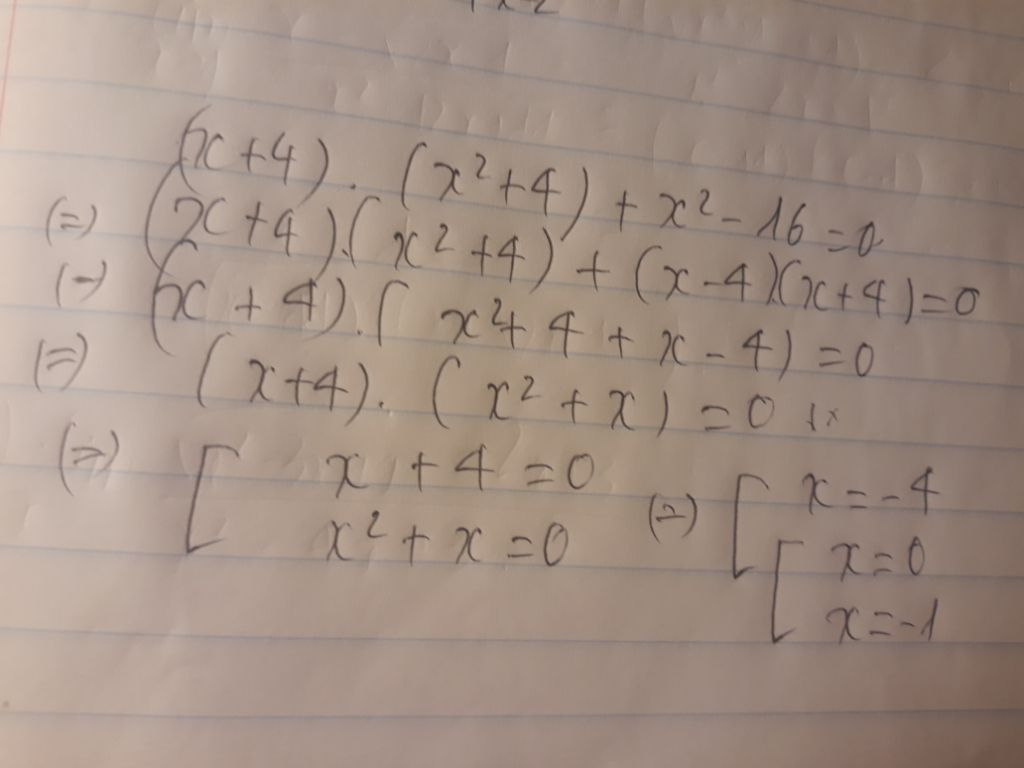 (x+4).(x²+4)+x²-16=0
(=) (x+4).(x²+4)+(x-4)(x+4)=0
(=) (x+4).(x²+4+x-4)=0
(=) (x+4).(x²+x)=0
(=) [ x+4=0 (=) [ x=-4
x²+x=0 [ x=0
x=-1